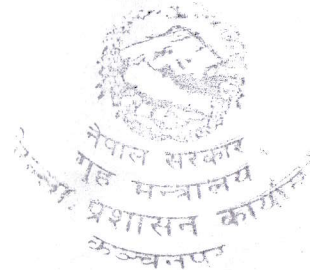 नेपाल सरकार
गृह मन्त्रालय
प्रशासन
कञ्चनपुर